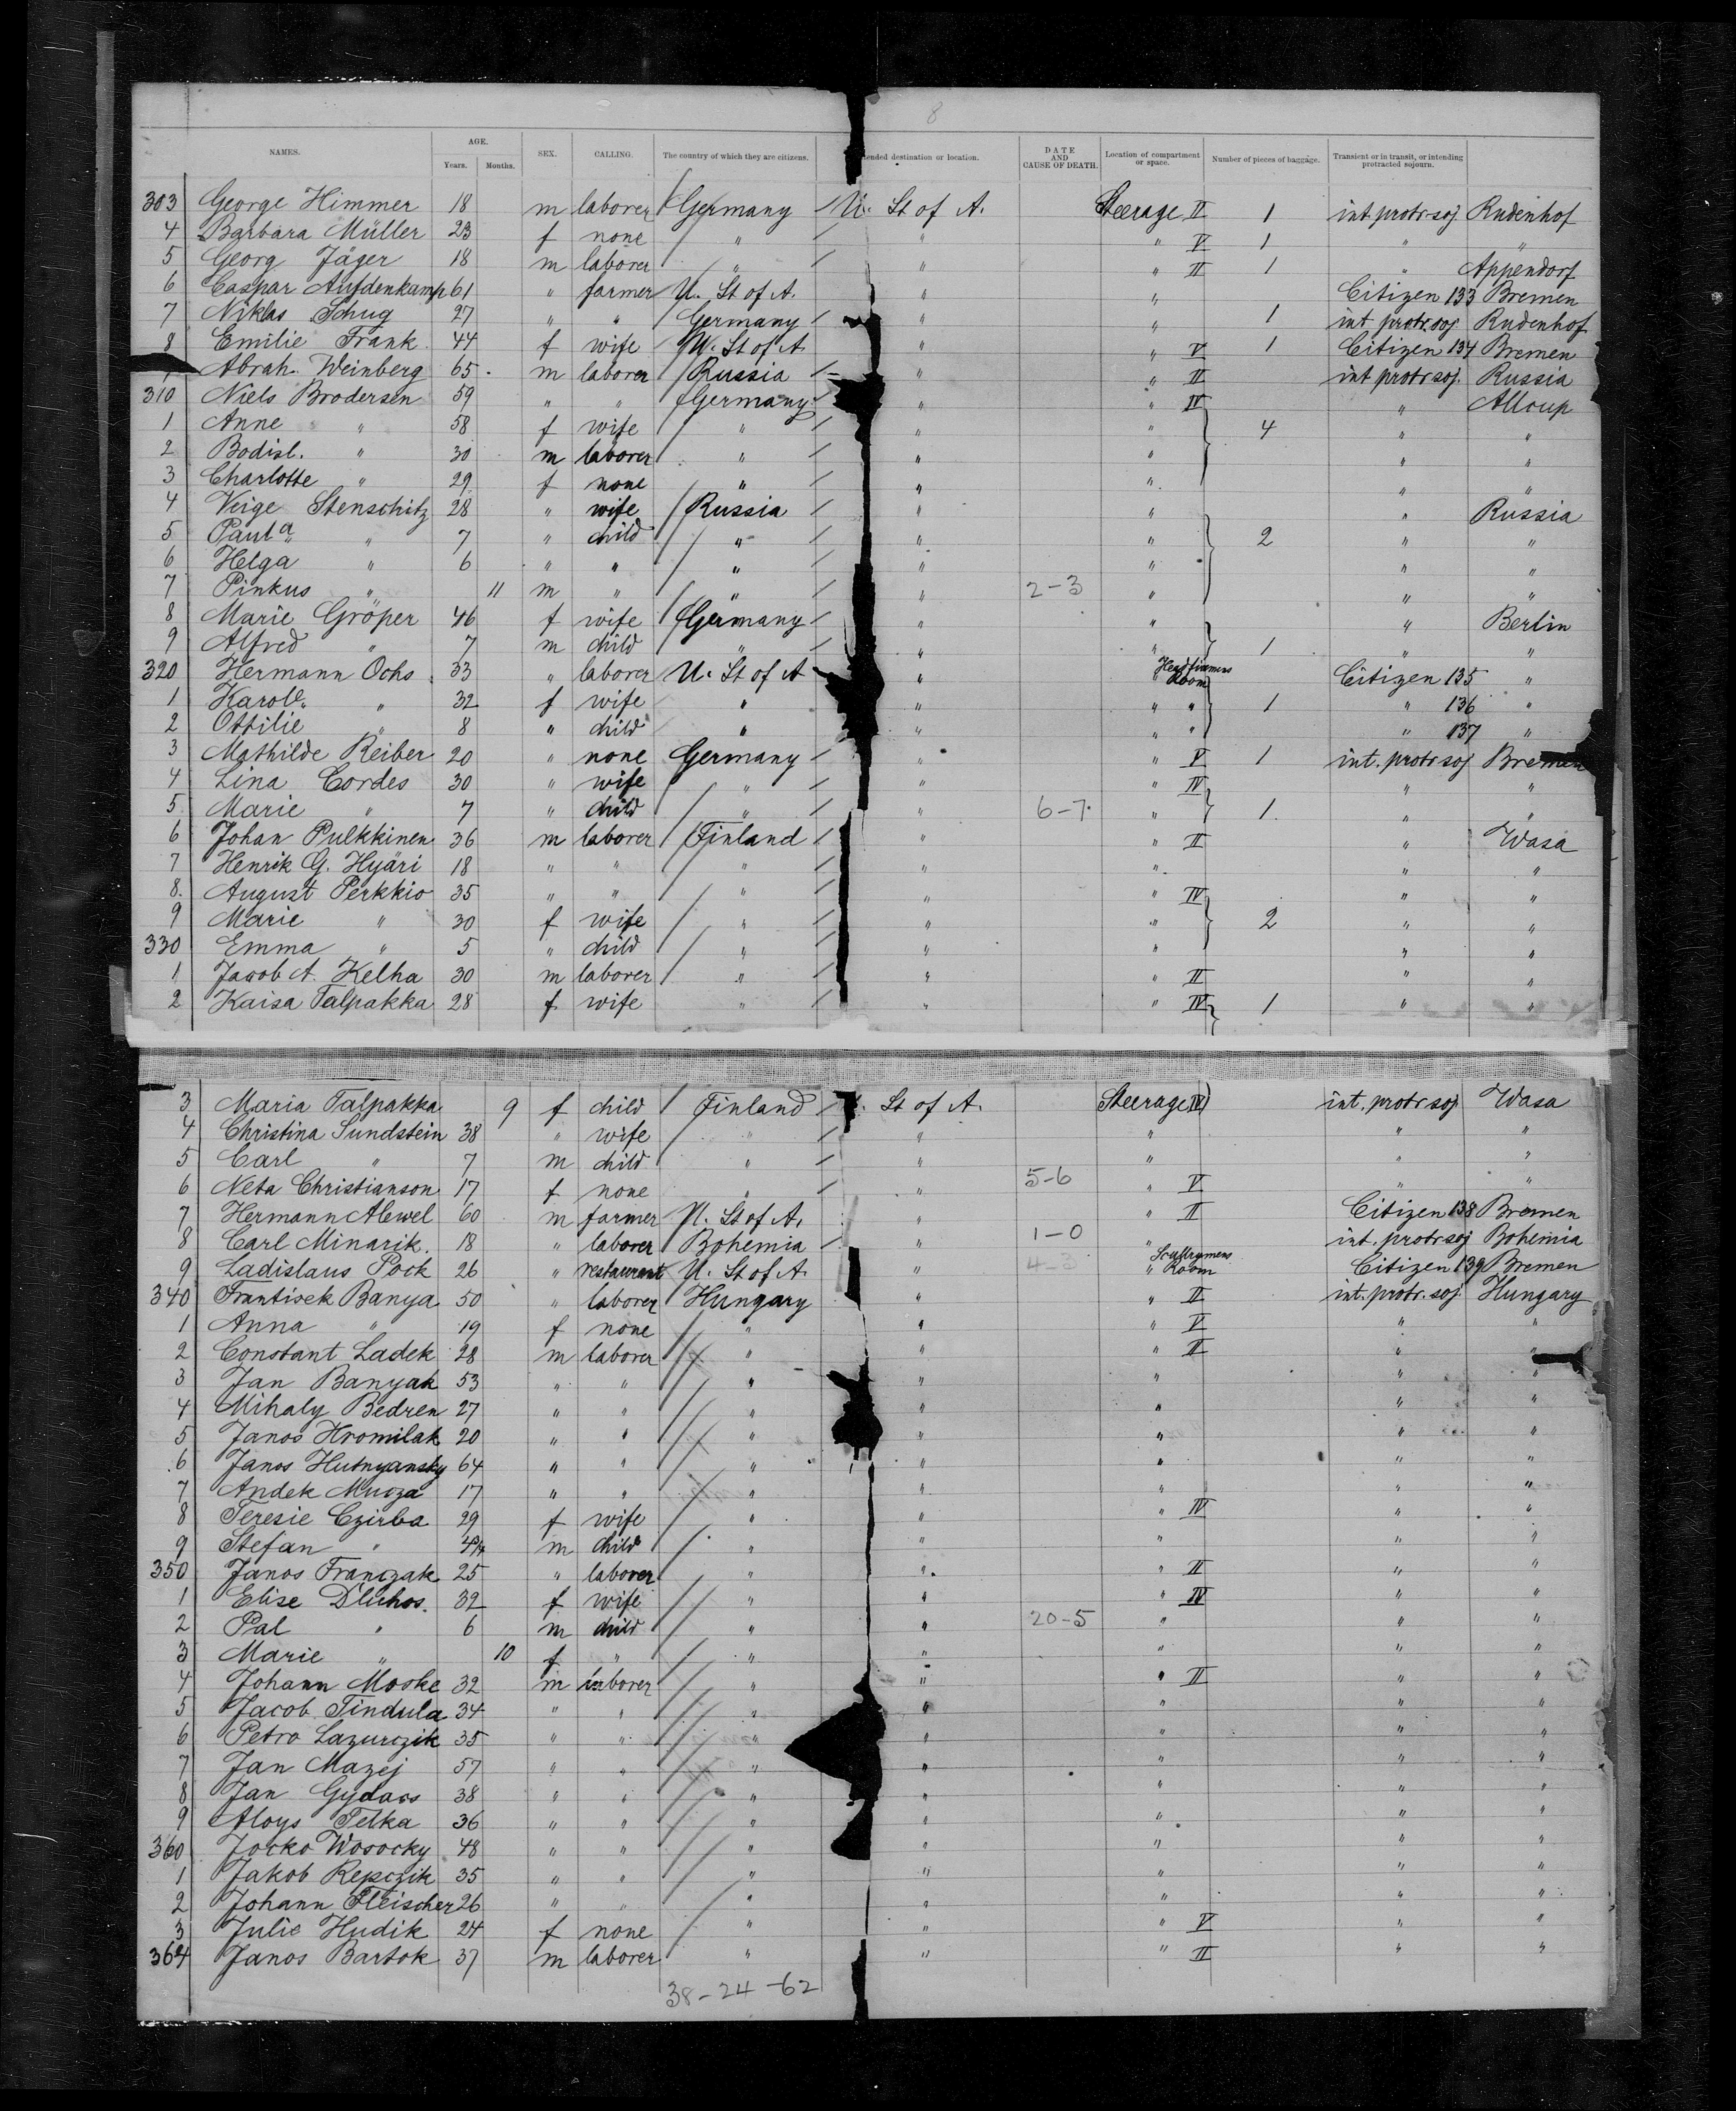 8
NAMES. AGE. Years. Months. SEX. CALLING. The country of which they are citizens. ended destination or location. DATE AND CAUSE OF DEATH. Location of compartment or space. Number of pieces of baggage. Transient or in transit, or intending protracted sojourn.
303 George Himmer 18 m laborer Germany U. St of A. Steerage II 1 int. protr soj Rudenhof
4 Barbara Müller 23 f none " " " V 1 " "
5 Georg Jäger 18 m laborer " " " II 1 " Appendorf
6 Caspar Aufdenkamp 61 " farmer U. St of A. " " Citizen 133 Bremen
7 Niklas Schug 27 " " Germany " " 1 int protr. soj. Rudenhof
8 Emilie Frank 44 f wife U. St of A " " V 1 Citizen 134 Bremen
Abrah. Weinberg 65 m laborer Russia " " II int protr soj. Russia
310 Niels Brodersen 59 " " Germany " " IV " Alloup
1 Anne " 58 f wife " " " 4 " "
2 Bodisl. " 30 m laborer " " " " "
3 Charlotte " 29 f none " " " " "
4 Veige Stenschitz 28 " wife Russia " " " Russia
5 Paula " 7 " child " " " 2 " "
6 Helga " 6 " " " " " " "
7 Pinkus " 11 m " " " 2-3 " " "
8 Marie Gröper 46 f wife Germany " " " Berlin
9 Alfred " 7 m child " " " 1 " "
320 Hermann Ochs 33 " laborer U. St of A " " Room Citizen 135 "
1 Karole. " 32 f wife " " " " 1 " 136 "
2 Ottilie " 8 " child " " " " " 137 "
3 Mathilde Reiber 20 " none Germany " " V 1 int. protr soj Bremen
4 Lina Cordes 30 " wife " " " IV " "
5 Marie " 7 " child " " 6-7 " 1 " "
6 Johan Pulkkinen 36 m laborer Finland " " II " Wasa
7 Henrik G. Hyäri 18 " " " " " " "
8. August Perkkio 35 " " " " " IV " "
9 Marie " 30 f wife " " " 2 " "
330 Emma " 5 " child " " " " "
1 Jacob A. Kelha 30 m laborer " " " II " "
2 Kaisa Talpakka 28 f wife " " " IV 1 " "
3 Maria Talpakka 9 f child Finland St of A. Steerage IV int. protr soj Wasa
4 Christina Sundstein 38 " wife " " " " "
5 Carl " 7 m child " " " " "
6 Neta Christianson 17 f none " " 5-6 " V " "
7 Hermann Alewel 60 m farmer U. St of A. " " II Citizen 138 Bremen
8 Carl Minarik. 18 " laborer Bohemia " 1-0 " int. protr soj Bohemia
9 Ladislaus Pock 26 " restaurant U. St of A. " 4-3 " Room Citizen 139 Bremen
340 Frantisek Banya 50 " laborer Hungary " " II int. protr. soj. Hungary
1 Anna " 19 f none " " " V " "
2 Constant Ladek 28 m laborer " " " II " "
3 Jan Banyak 53 " " " " " " "
4 Mihaly Bedren 27 " " " " " " "
5 Janos Hromilak 20 " " " " " " "
6 Janos Hutnyansky 64 " " " " " " "
7 Andek Mucza 17 " " " " " " "
8 Teresie Czirba 29 f wife " " " IV " "
9 Stefan " m child " " " " "
350 Janos Franczak 25 " laborer " " " II " "
1 Elise D'luhos. 32 f wife " " " IV " "
2 Pal " 6 m child " " 20-5 " " "
3 Marie " 10 f " " " " " "
4 Johann Moske 32 m laborer " " " II " "
5 Jacob Tindula 34 " " " " " " "
6 Petro Lazurczik 35 " " " " " " "
7 Jan Mazej 57 " " " " " " "
8 Jan Gydaos 38 " " " " " " "
9 Aloys Telka 36 " " " " " " "
360 Jocko Wosocky 48 " " " " " " "
1 Jakob Repczik 35 " " " " " " "
2 Johann Fleischer 26 " " " " " " "
3 Julie Hudik 24 f none " " " V " "
364 Janos Bartok 37 m laborer " " " II " "
38-24-62